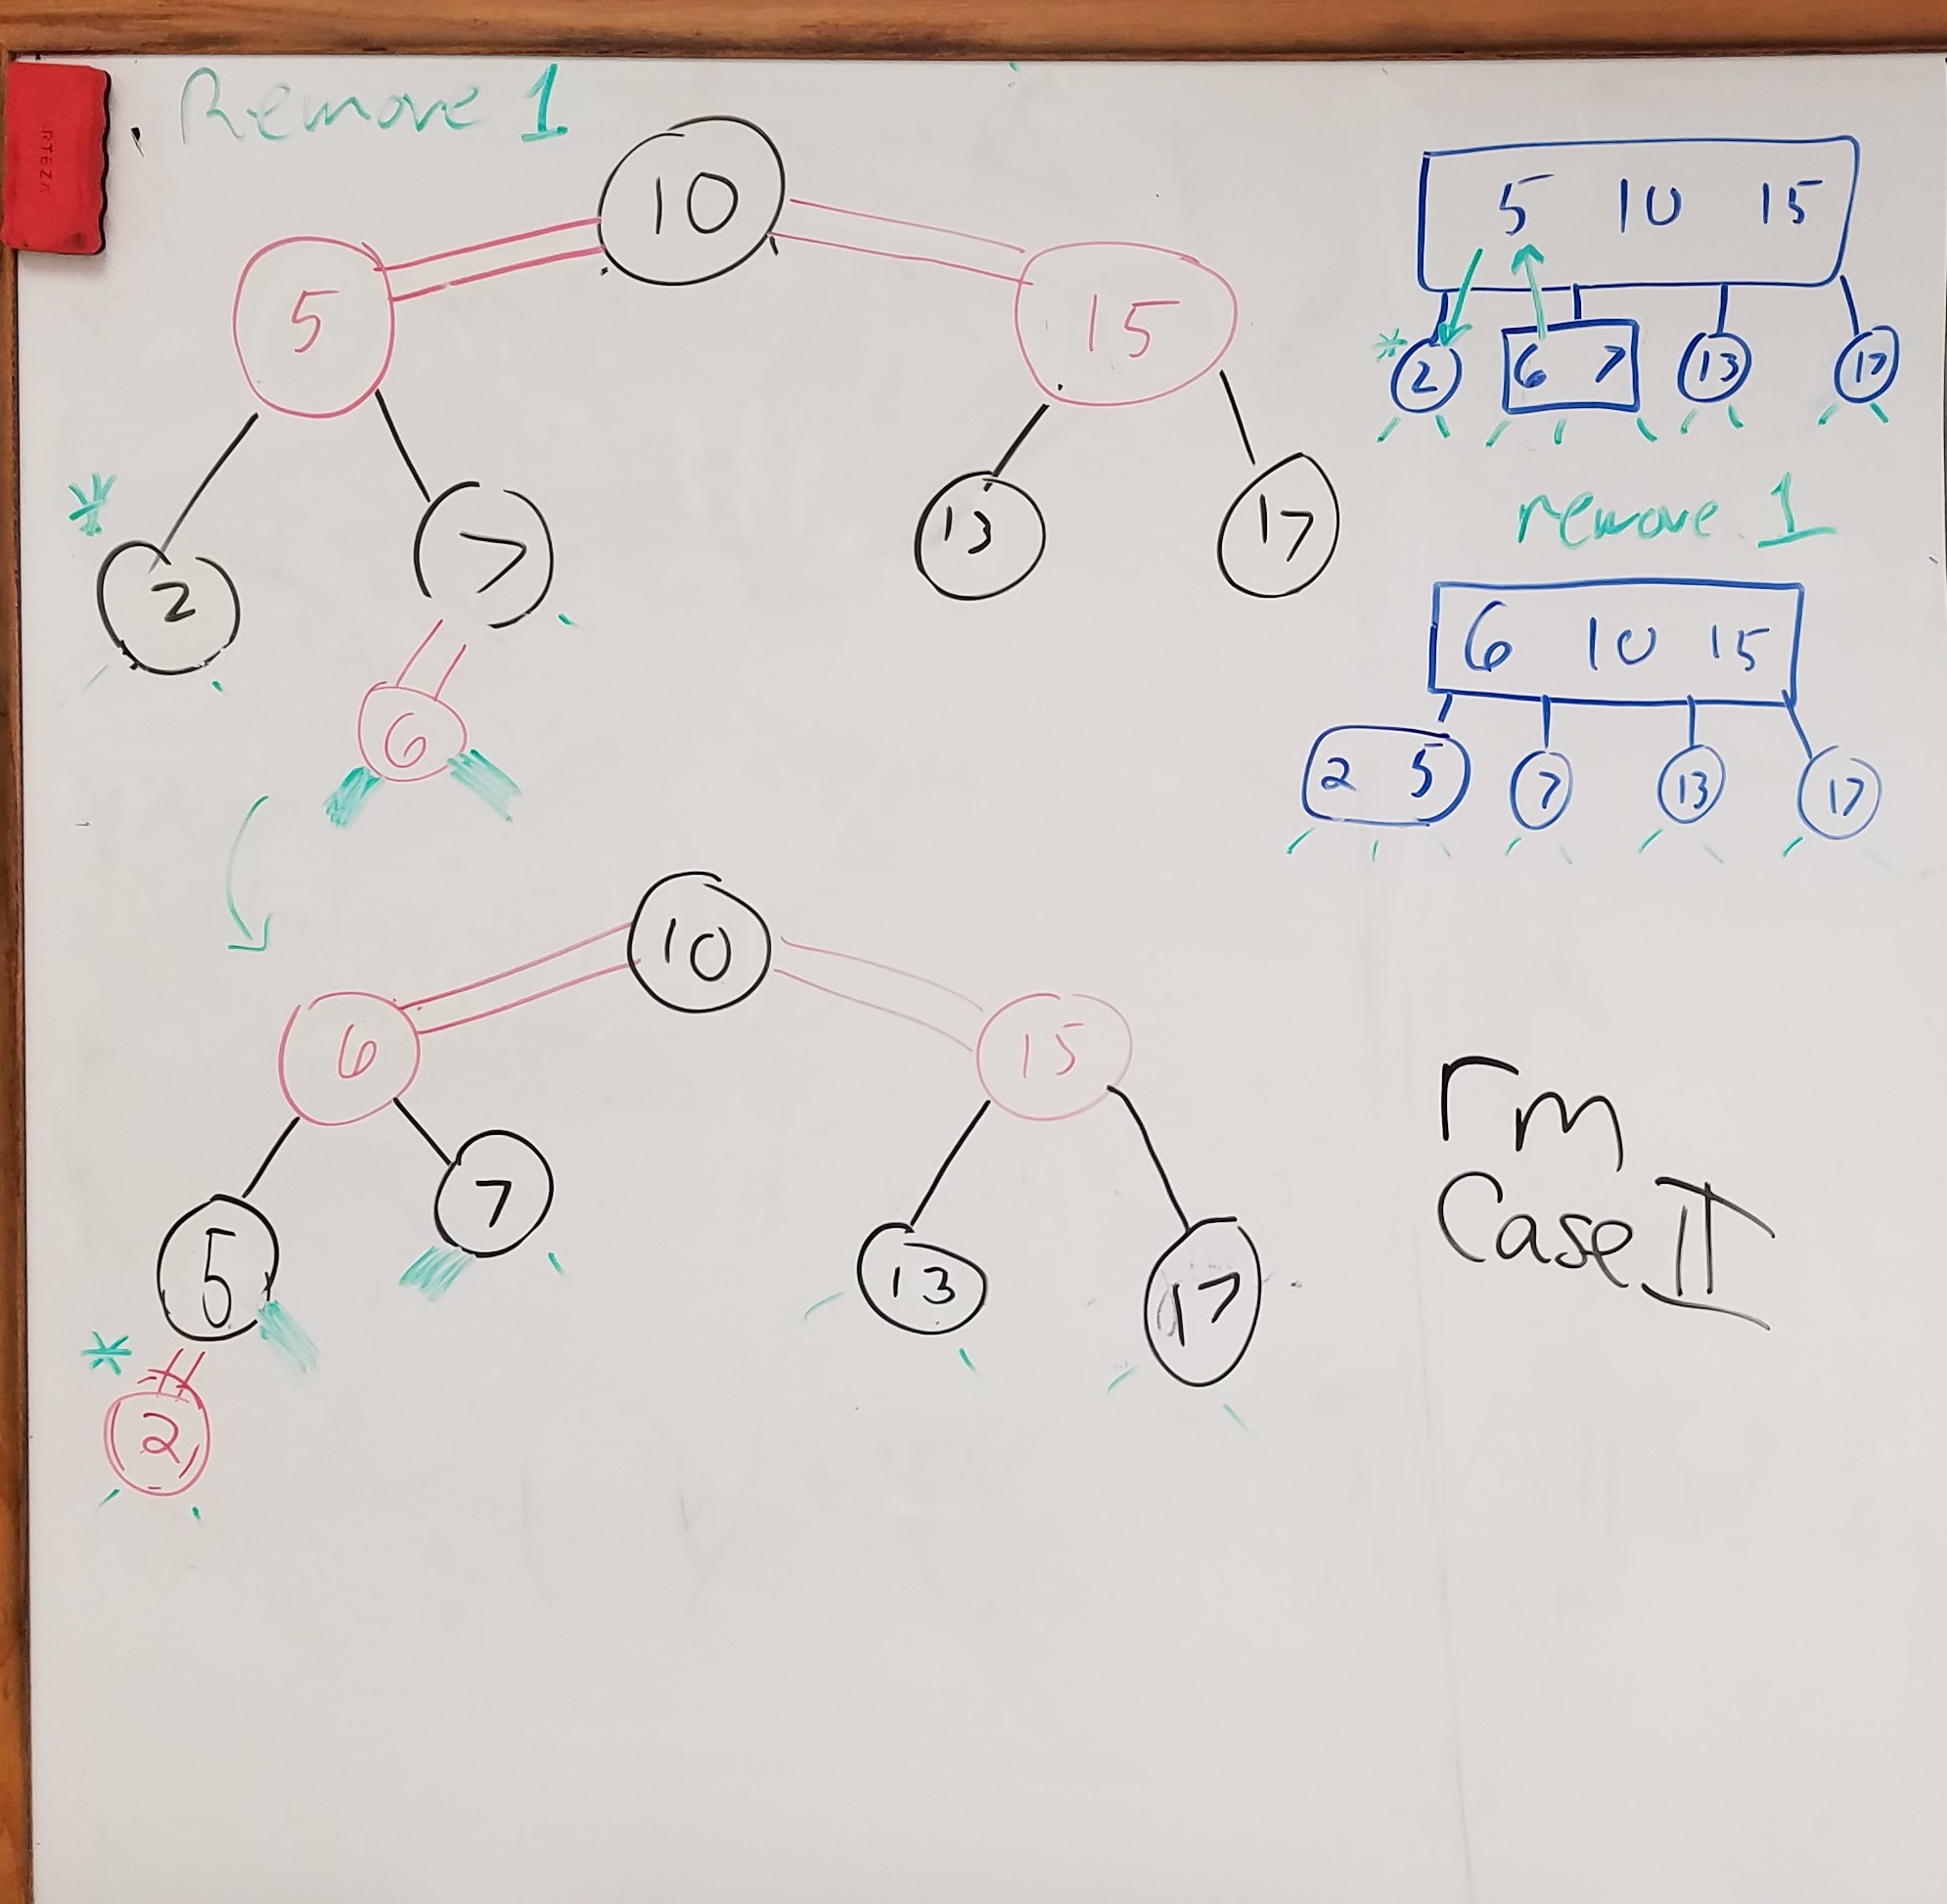 Remove 1
10
5 15
2 7 13 17
6
10
6 15
5 7 13 17
2
5 10 15
2 6 7 13 17
remove 1
6 10 15
2 5 7 13 17
rm
Case II
ARTEZA